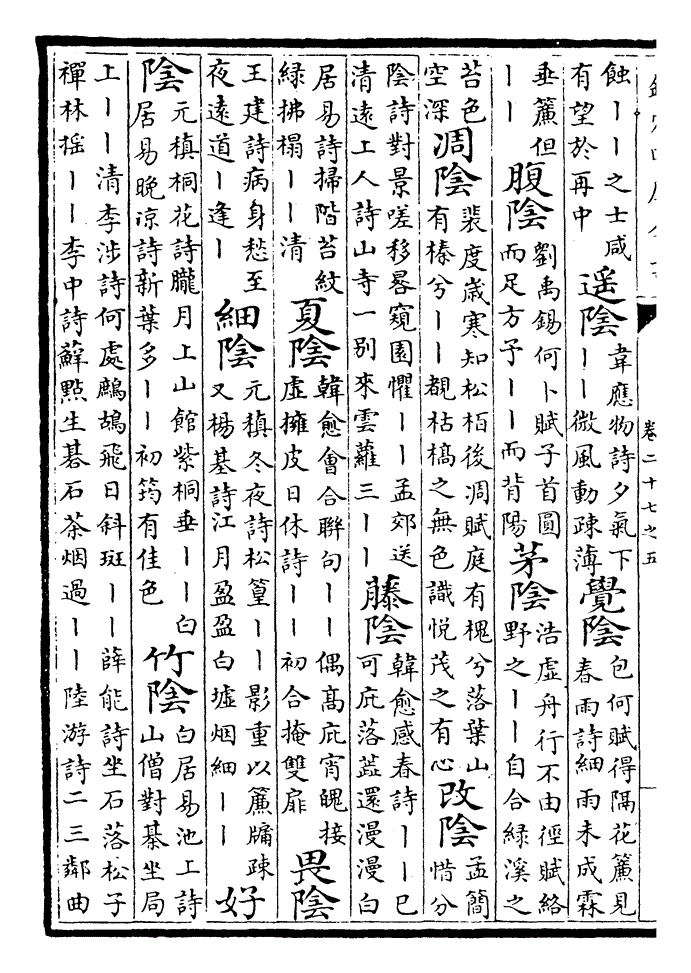 卷二十七之五
蝕——之士咸
有望於再中
遥陰
韋應物詩夕氣下
——微風動疎薄
覺陰
包何賦得隔花簾見
春雨詩細雨未成霖
垂簾但
——
腹陰
劉禹錫何卜賦子首圓
而足方予——而背陽
茅陰
浩虚舟行不由徑賦絡
野之——自合緑溪之
苔色
空深
凋陰
裴度歳寒知松栢後凋賦庭有槐兮落葉山
有榛兮——覩枯槁之無色識悦茂之有心
改陰
孟簡
惜分
陰詩對景嗟移晷窺園懼——孟郊送
清遠上人詩山寺一别來雲蘿三——
藤陰
韓愈感春詩——已
可庇落蕋還漫漫白
居易詩掃階苔紋
緑拂榻——清
夏陰
韓愈會合聯句——偶髙庇宵魄接
虚擁皮日休詩——初合掩雙扉
畏陰
王建詩病身愁至
夜遠道—逢—
細陰
元稹冬夜詩松篁——影重以簾牖疎
又楊基詩江月盈盈白墟烟細——
好
陰
元稹桐花詩朧月上山館紫桐垂——白
居易晩凉詩新葉多——初筠有佳色
竹陰
白居易池上詩
山僧對棊坐局
上——清李涉詩何處鷓鴣飛日斜斑——薛能詩坐石落松子
禪林揺——李中詩蘚㸃生碁石茶烟過——陸游詩二三鄰曲